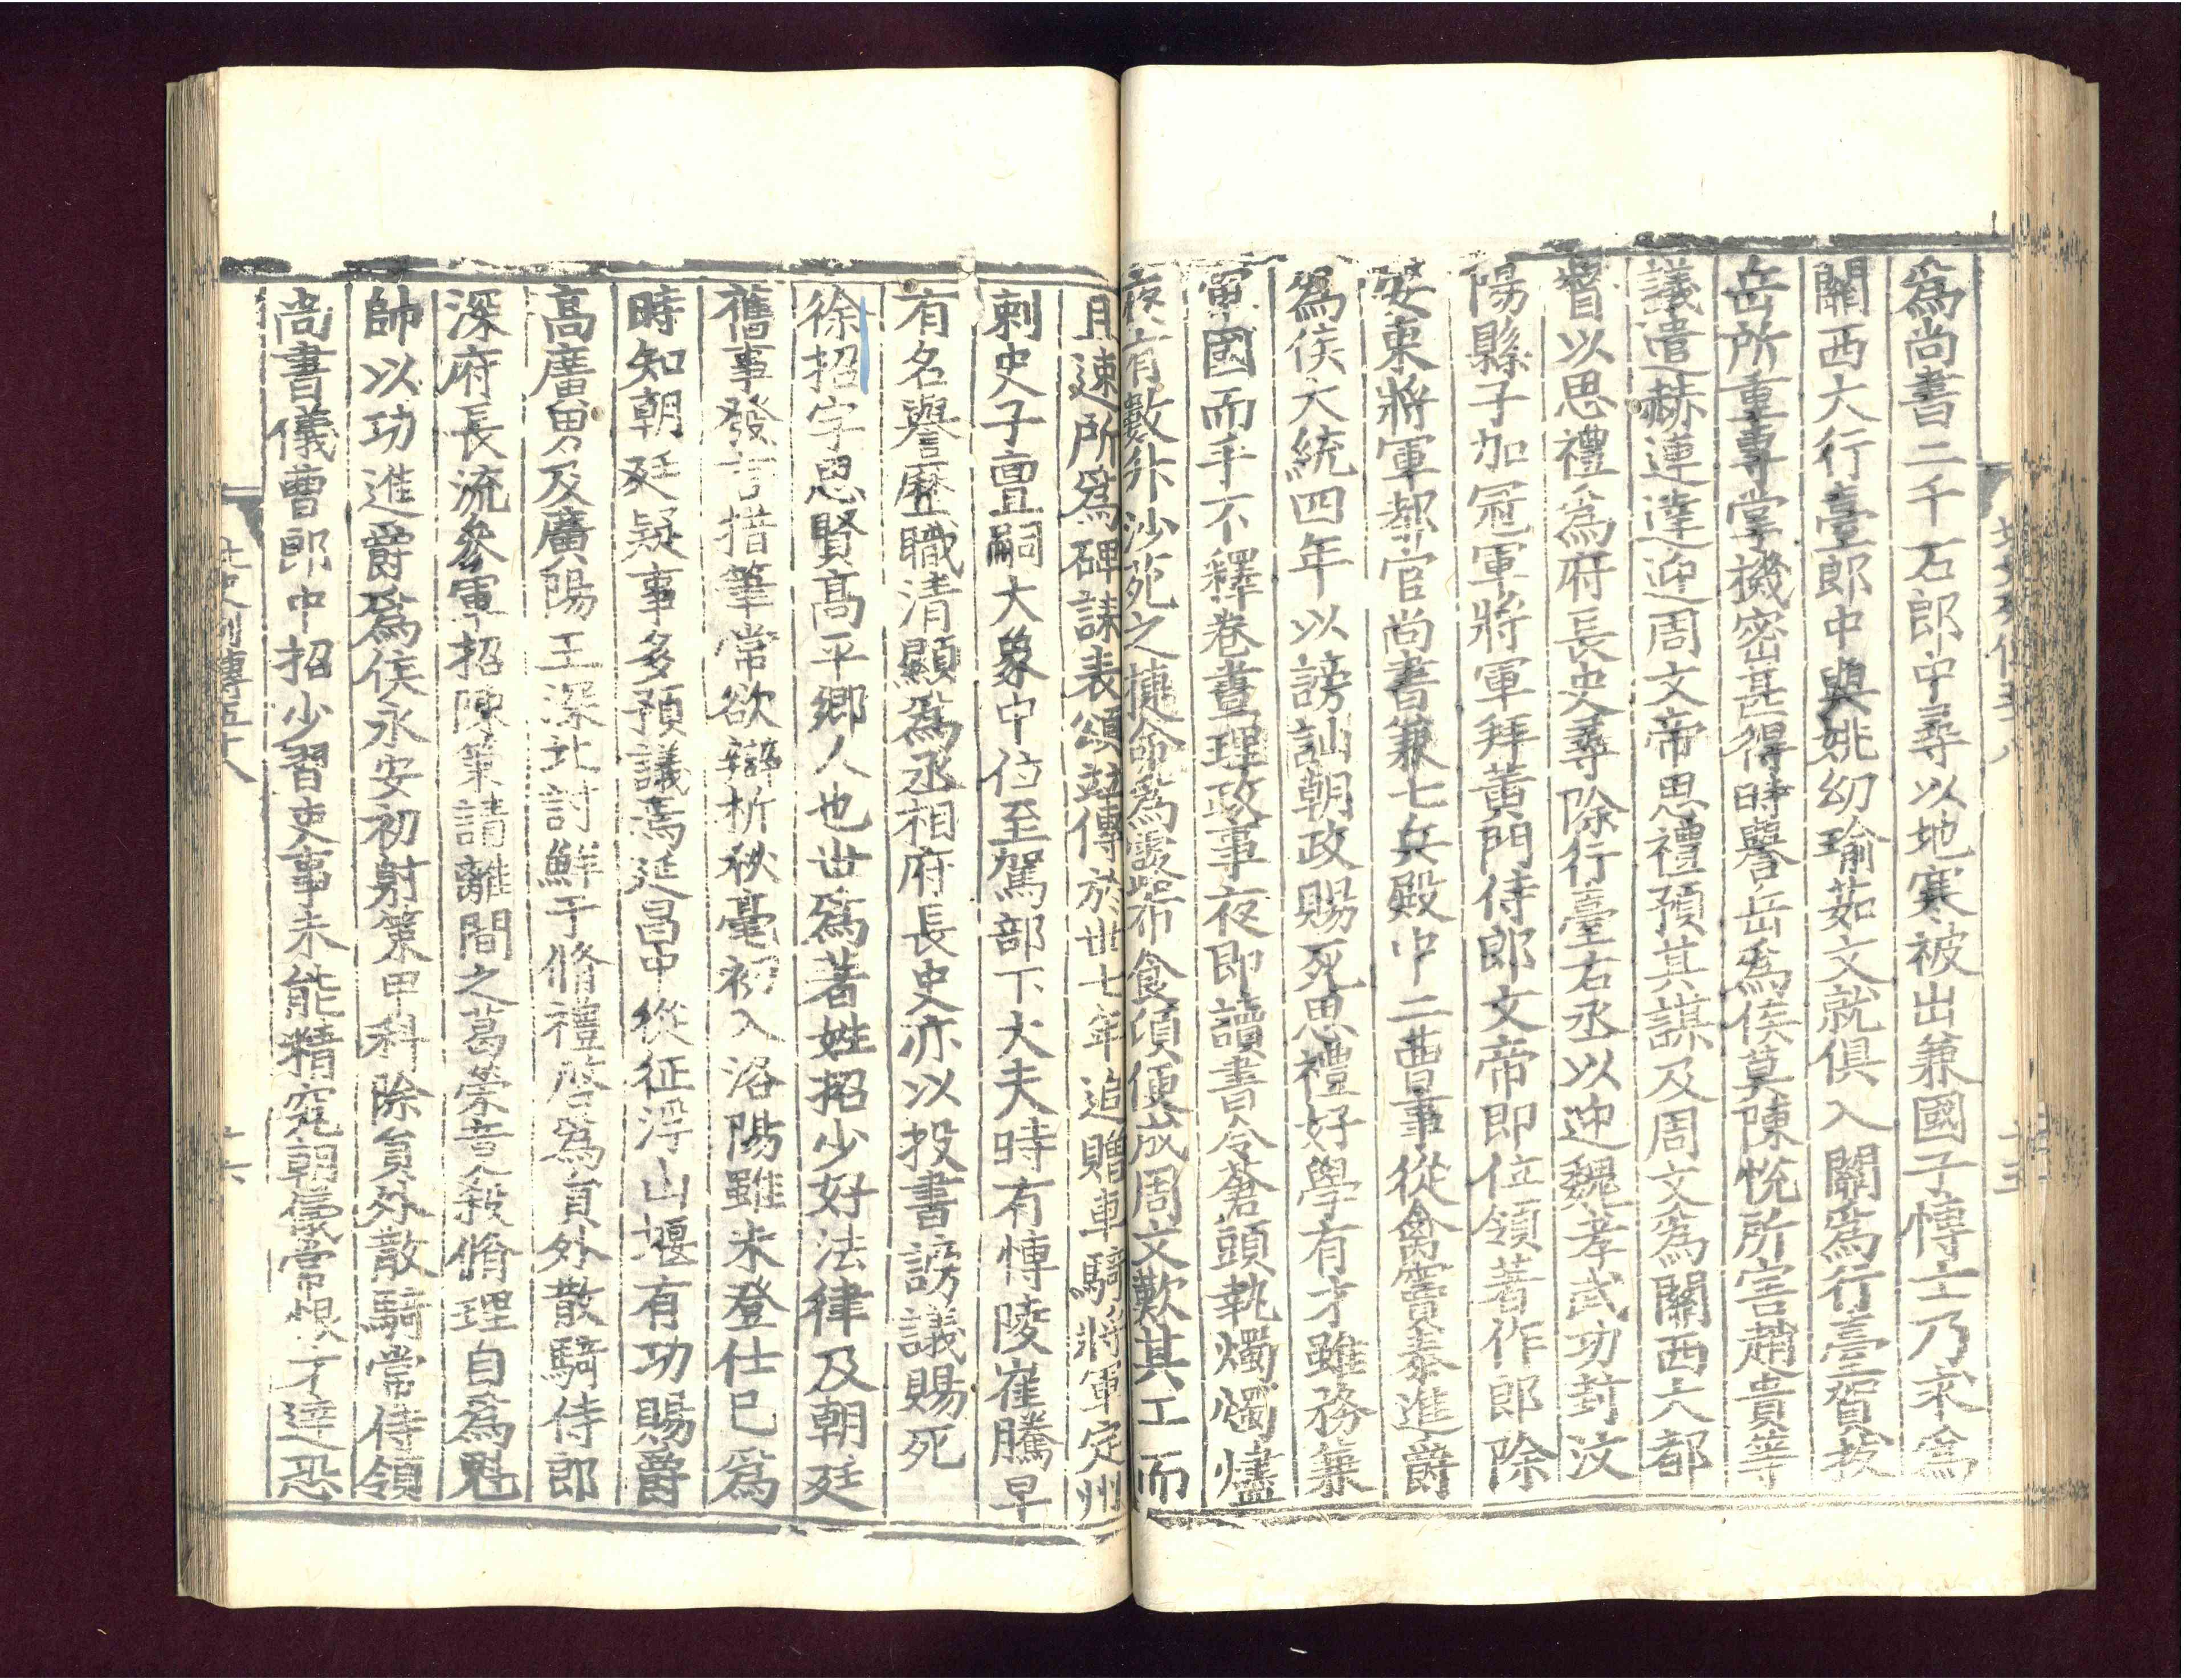 爲尚書二千石郎中尋以地寒被出兼國子愽士乃求爲
關西大行臺郎中與姚幼瑜茹文就俱入關爲行臺賀拔
岳所重專掌機密甚得時譽岳爲侯莫陳悅所害趙貴等
議遣赫連達迎周文帝思禮預其謀及周文爲關西大都
督以思禮爲府長史尋除行臺右丞以迎魏孝武功封汶
陽縣子加冠軍將軍拜黃門侍郎文帝即位領著作郎除
安東將軍都官尚書兼七兵殿中二曹事從禽竇泰進爵
爲侯大統四年以謗訕朝政賜死思禮好學有才雖務兼
軍國而手不釋卷晝理政事夜即讀書令蒼頭執燭燭燼
夜有數升沙苑之捷命爲露布食頃便成周文歎其工而
且速所爲碑誄表頌竝傳於世七年追贈車騎將軍定州
刺史子亶嗣大象中位至駕部下大夫時有愽陵崔騰早
有名譽歷職清顯爲丞相府長史亦以投書謗議賜死
徐招字思賢高平鄉人也世爲著姓招少好法律及朝廷
舊事發言措筆常欲辯析秋毫初入洛陽雖未登仕已爲
時知朝廷疑事多預議焉延昌中從征浮山堰有功賜爵
高廣男及廣陽王深北討鮮于脩禮啓爲員外散騎侍郎
深府長流參軍招陳策請離間之葛榮竟殺脩理自爲魁
帥以功進爵爲侯永安初射策甲科除員外散騎常侍領
尚書儀曹郎中招少習吏事未能精究朝儀常恨才達恐
北史列傳五十八
十六